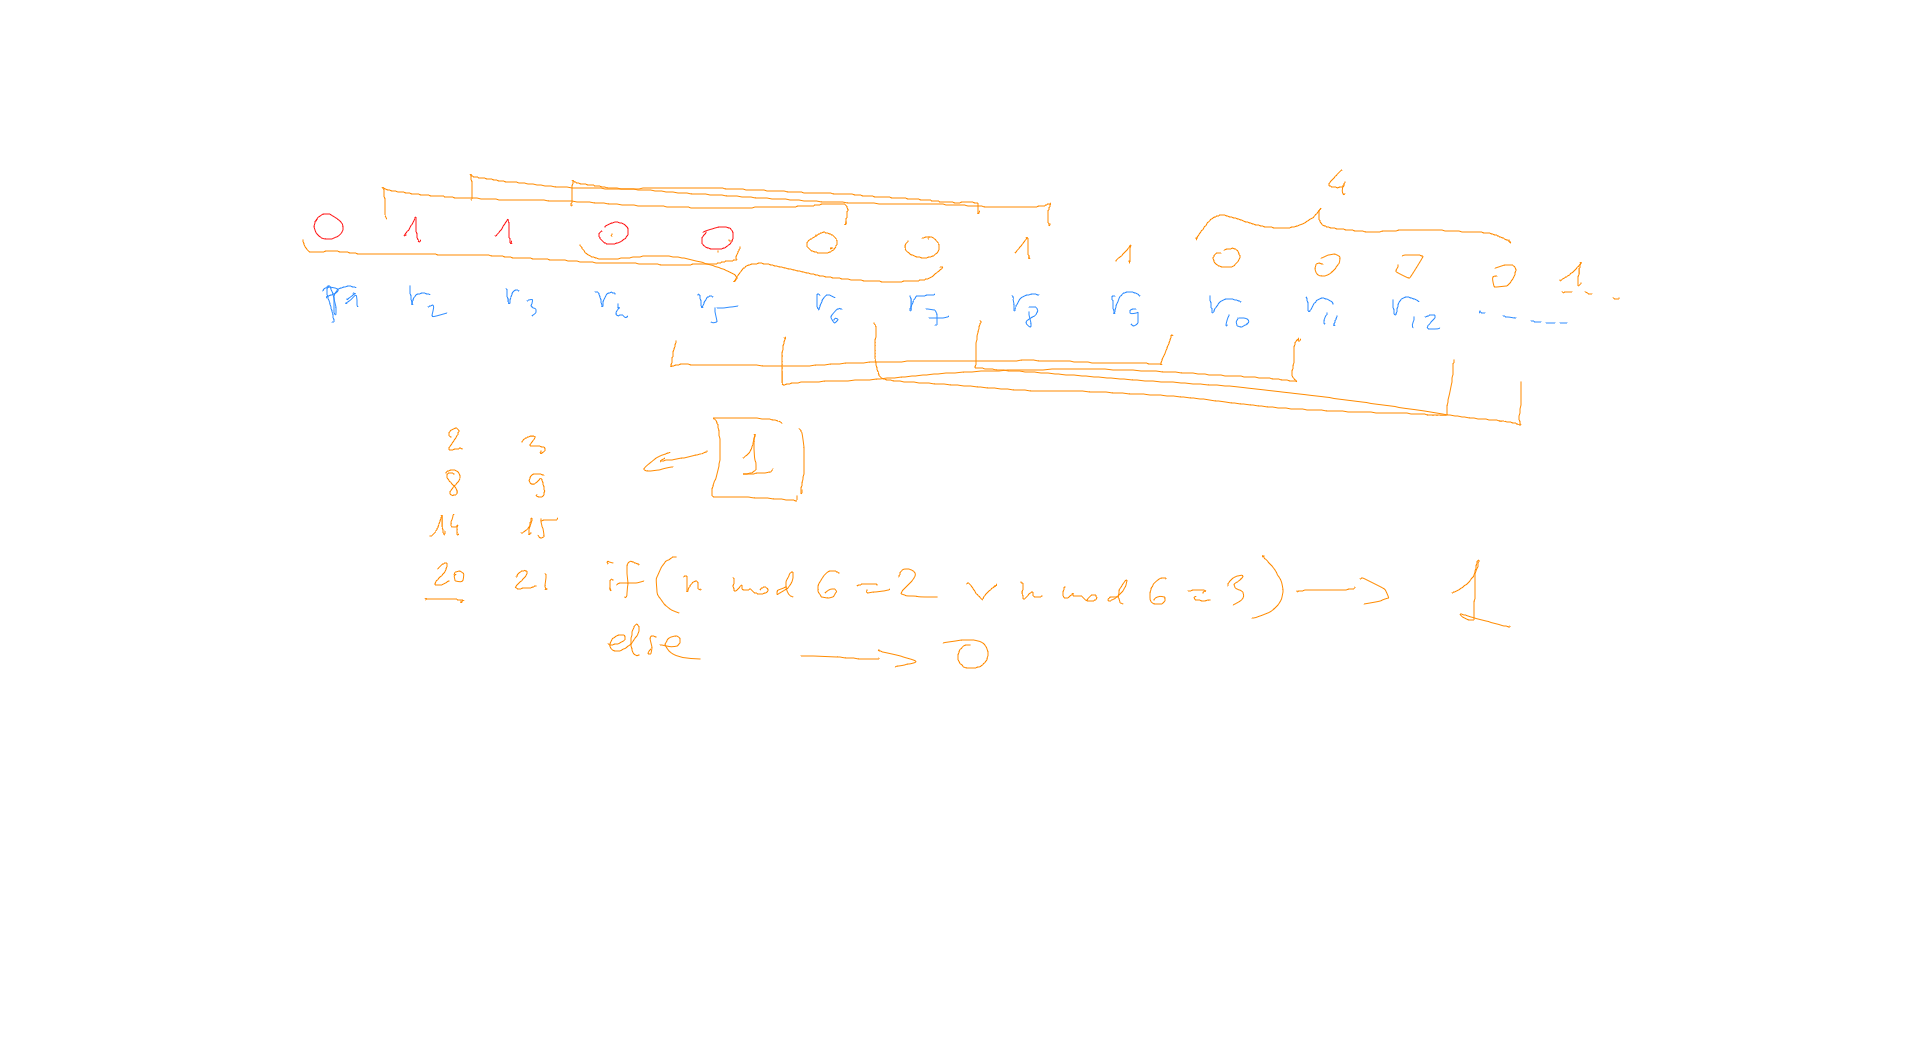 4
0 1 1 0 0 0 0 1 1 0 0 0 0 1 - - .
r1 r2 r3 r4 r5 r6 r7 r8 r9 r10 r11 r12 - - - - -
2 3
1
8 9
14 15
20 21 if (n mod 6 = 2 ∨ n mod 6 = 3) → 1
else → 0